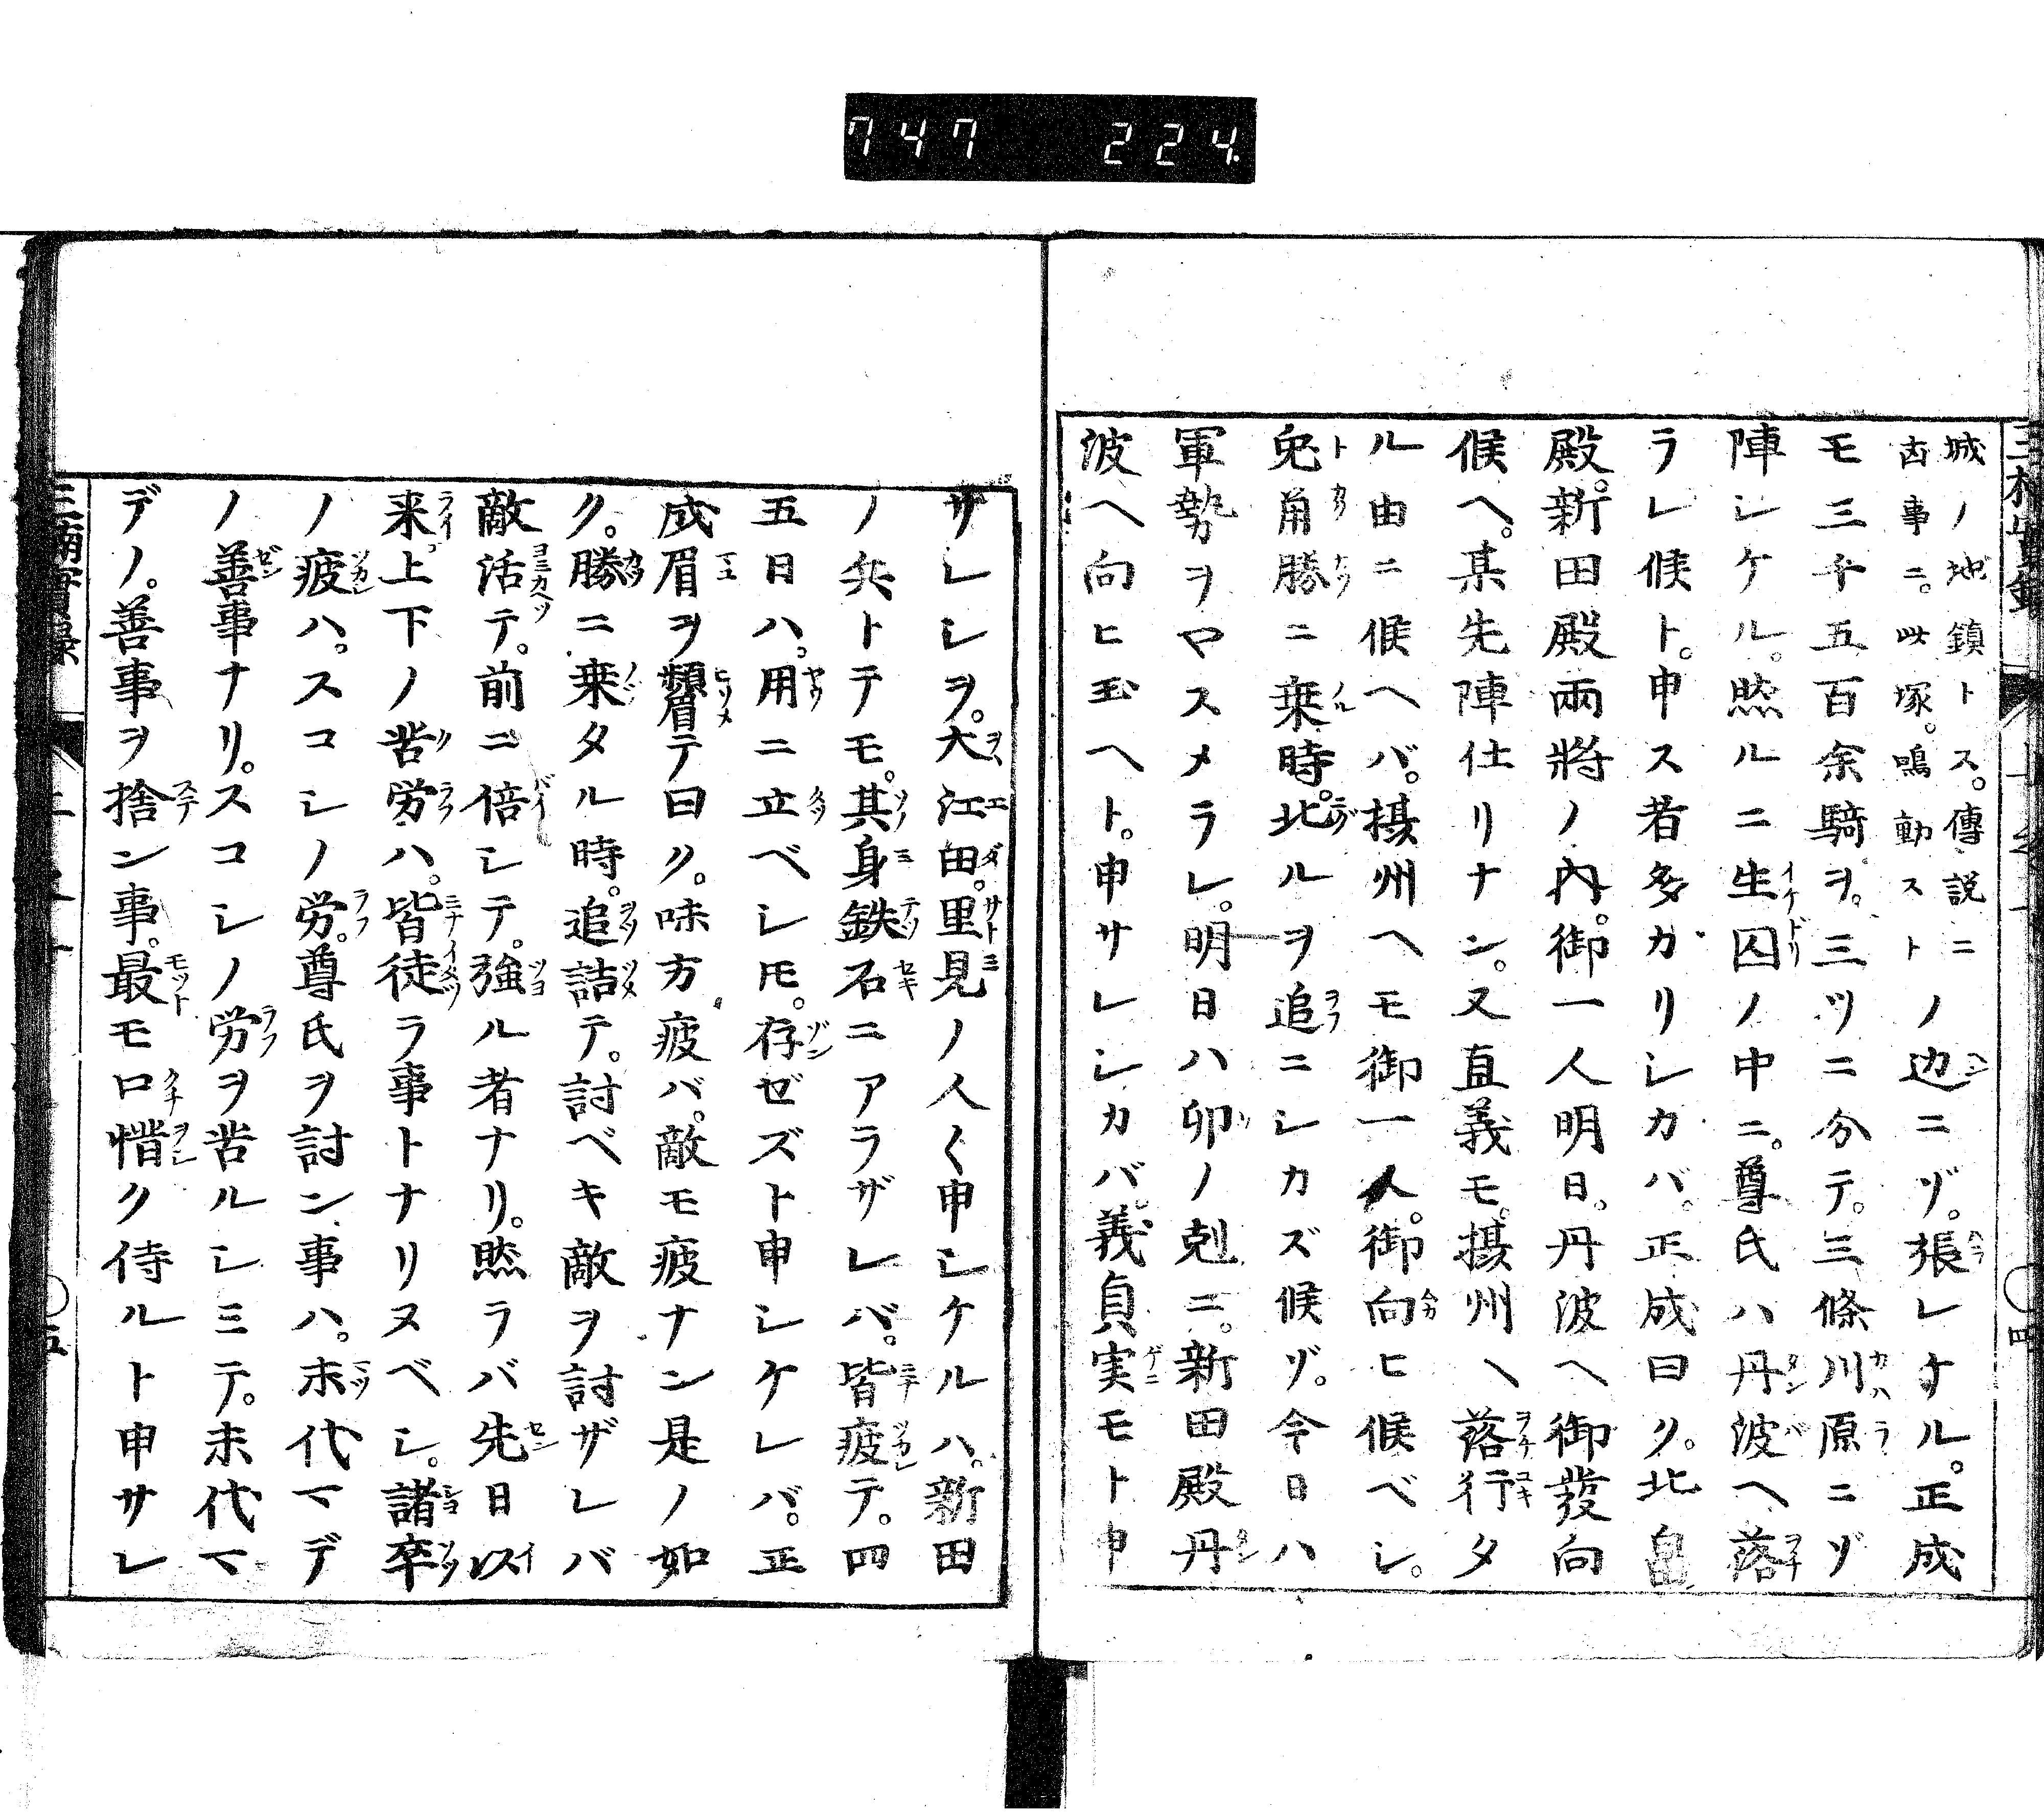 747 224
城ノ地鎮トス。傳説ニ
凶事ニ。此塚。鳴動スト
ノ辺ニゾ。張レケル。正成
モ三千五百余騎ヲ。三ツニ分テ。三條川原ニゾ
陣シケル。然ルニ生囚ノ中ニ。尊氏ハ丹波ヘ落
ラレ候ト。申ス者多カリシカバ。正成曰ク。北畠
殿。新田殿兩將ノ内。御一人明日。丹波ヘ御發向
候ヘ。某先陣仕リナン。又直義モ。摂州ヘ落行タ
ル由ニ候ヘバ。摂州ヘモ御一人。御向ヒ候ベシ。
兎角勝ニ乗時。北ルヲ追ニシカズ候ゾ。今日ハ
軍勢ヲヤスメラレ。明日ハ卯ノ剋ニ。新田殿丹
波ヘ向ヒ玉ヘト。申サレシカバ。義貞実モト申
サレシヲ。大江田。里見ノ人〱申シケルハ。新田
ノ兵トテモ。其身鉄石ニアラザレバ。皆疲テ。四
五日ハ。用ニ立ベシ𪜈。存ゼズト申シケレバ。正
成眉ヲ顰テ曰ク。味方疲バ。敵モ疲ナン是ノ如
ク。勝ニ乗タル時。追詰テ。討ベキ敵ヲ討ザレバ
敵活テ。前ニ倍シテ。強ル者ナリ。然ラバ先日以
来。上下ノ苦労ハ。皆徒ラ事トナリヌベシ。諸卒
ノ疲ハ。スコシノ労。尊氏ヲ討ン事ハ。末代マデ
ノ善事ナリ。スコシノ労ヲ苦ルシミテ。末代マ
デノ。善事ヲ捨ン事。最モ口惜ク侍ルト申サレ